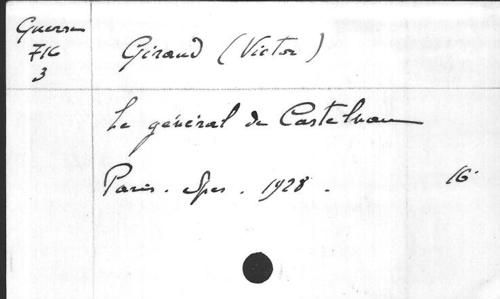 Guerre
7K
3
Giraud (Victor)
Le général de Castelnau
Paris. Spes. 1928.
16°